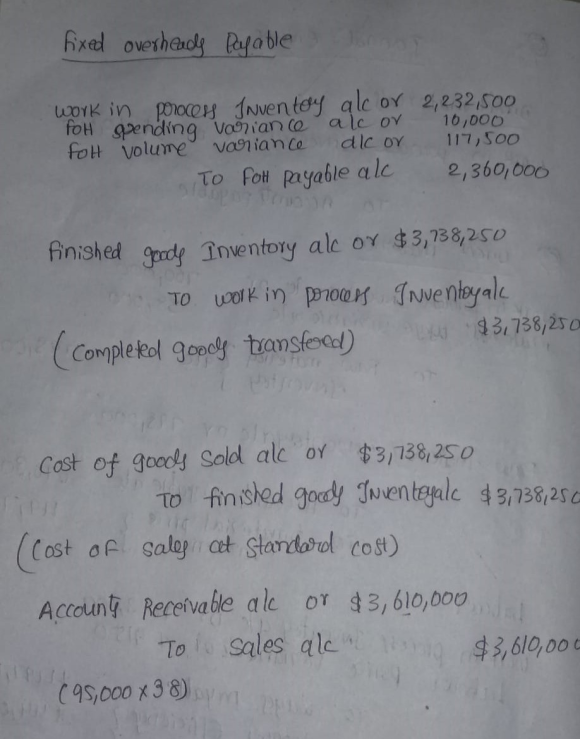 Fixed overheads Payable
Work in process Inventory a/c or 2,232,500
FOH spending variance a/c or 10,000
FOH volume variance a/c or 117,500
To FOH payable a/c 2,360,000
Finished goods Inventory a/c or $3,738,250
To work in process Inventory a/c
$3,738,250
(Completed goods transfered)
Cost of goods sold a/c or $3,738,250
To finished goods Inventory a/c $3,738,250
(Cost of sales at Standard cost)
Accounts Receivable a/c or $3,610,000
To sales a/c $3,610,000
(95,000 x 38)